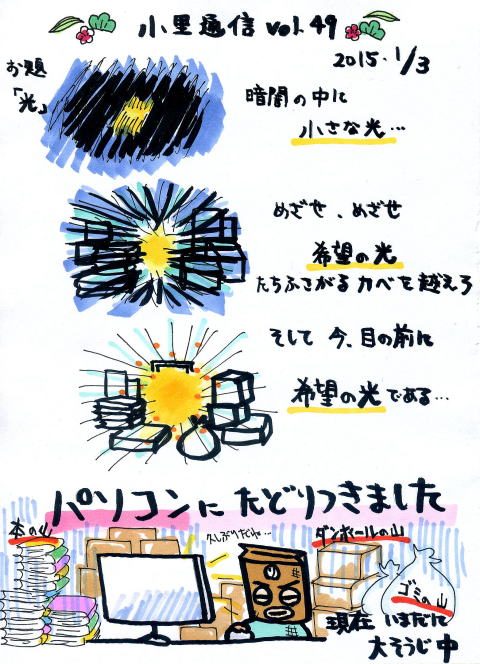 小里通信 vol.49
2015.1/3
お題
「光」
暗闇の中に
小さな光…
めざせ、めざせ
希望の光
たちふさがるカベを越えろ
そして今、目の前に
希望の光である…
パソコンにたどりつきました
本の山
久しぶりだね…
ダンボールの山
ゴミの山
現在 いまだに
大そうじ中